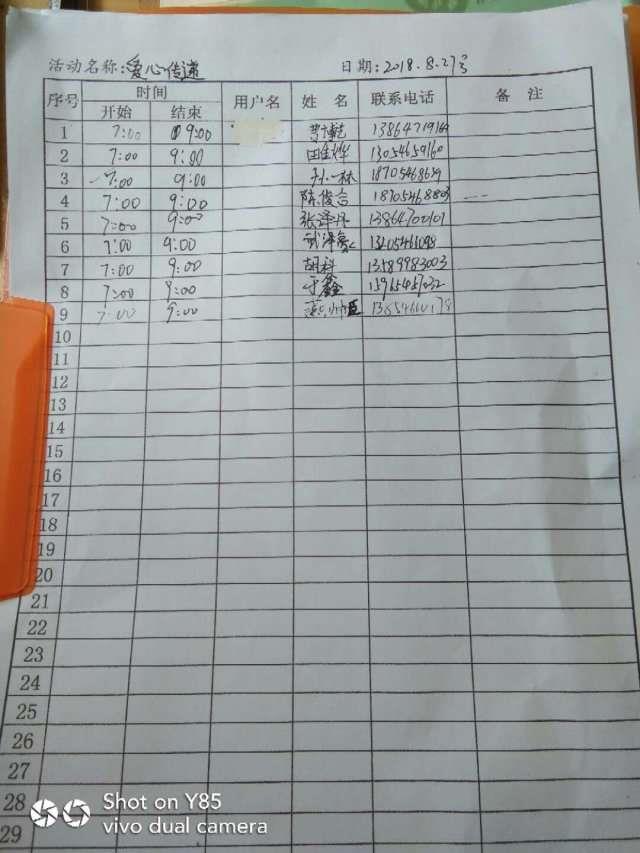 活动名称:爱心传递 日期:2018.8.27号
序号 时间 用户名 姓 名 联系电话 备 注
开始 结束
1 7:00 9:00
2 7:00 9:00 13054659160
3 7:00 9:00 孙一林
4 7:00 9:00 陈俊言 18705468803
5 7:00 9:00 张泽坪 13864700101
6 7:00 9:00
7 7:00 9:00 胡科 13589983003
8 7:00 9:00 于鑫 15965457032
9 7:00 9:00
10
11
12
13
14
15
16
17
18
19
20
21
22
23
24
25
26
27
28
29
Shot on Y85
vivo dual camera